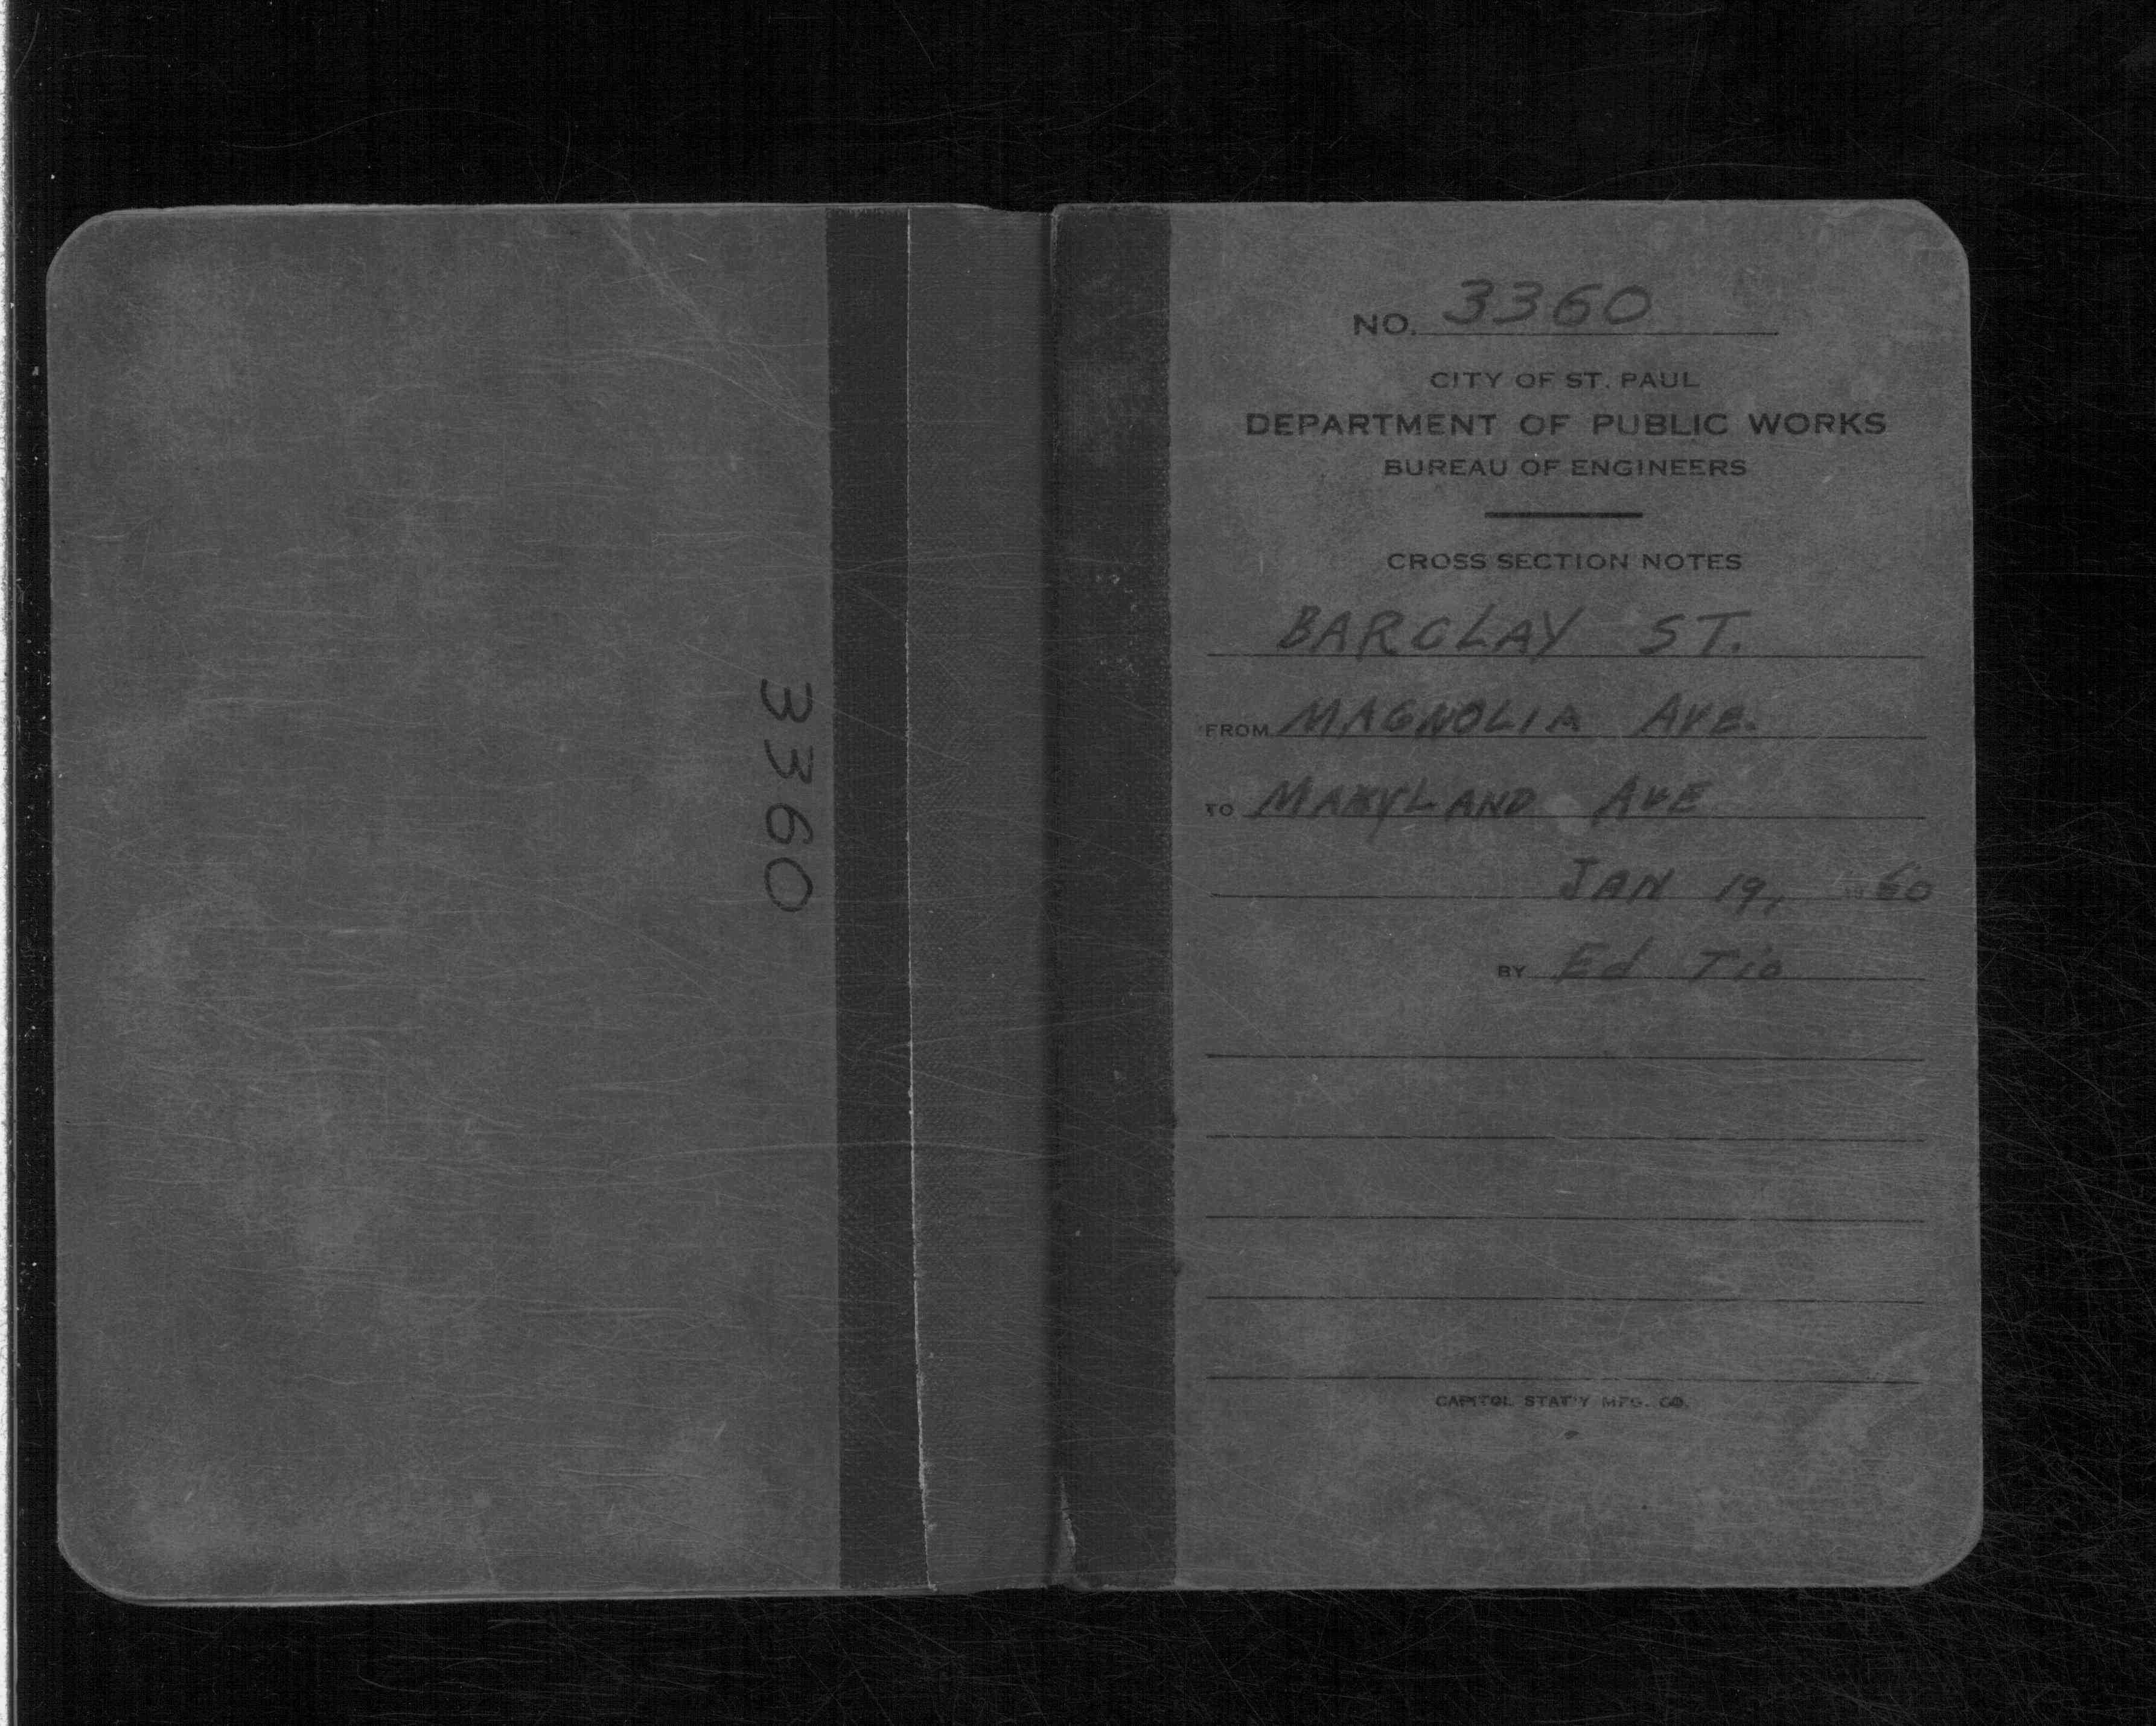 3360
NO. 3360
CITY OF ST. PAUL
DEPARTMENT OF PUBLIC WORKS
BUREAU OF ENGINEERS
CROSS SECTION NOTES
BARCLAY ST.
FROM MAGNOLIA AVE.
TO MARYLAND AVE
JAN 19, 1960
BY Ed Tio
CAPITOL STAT'Y MFG. CO.